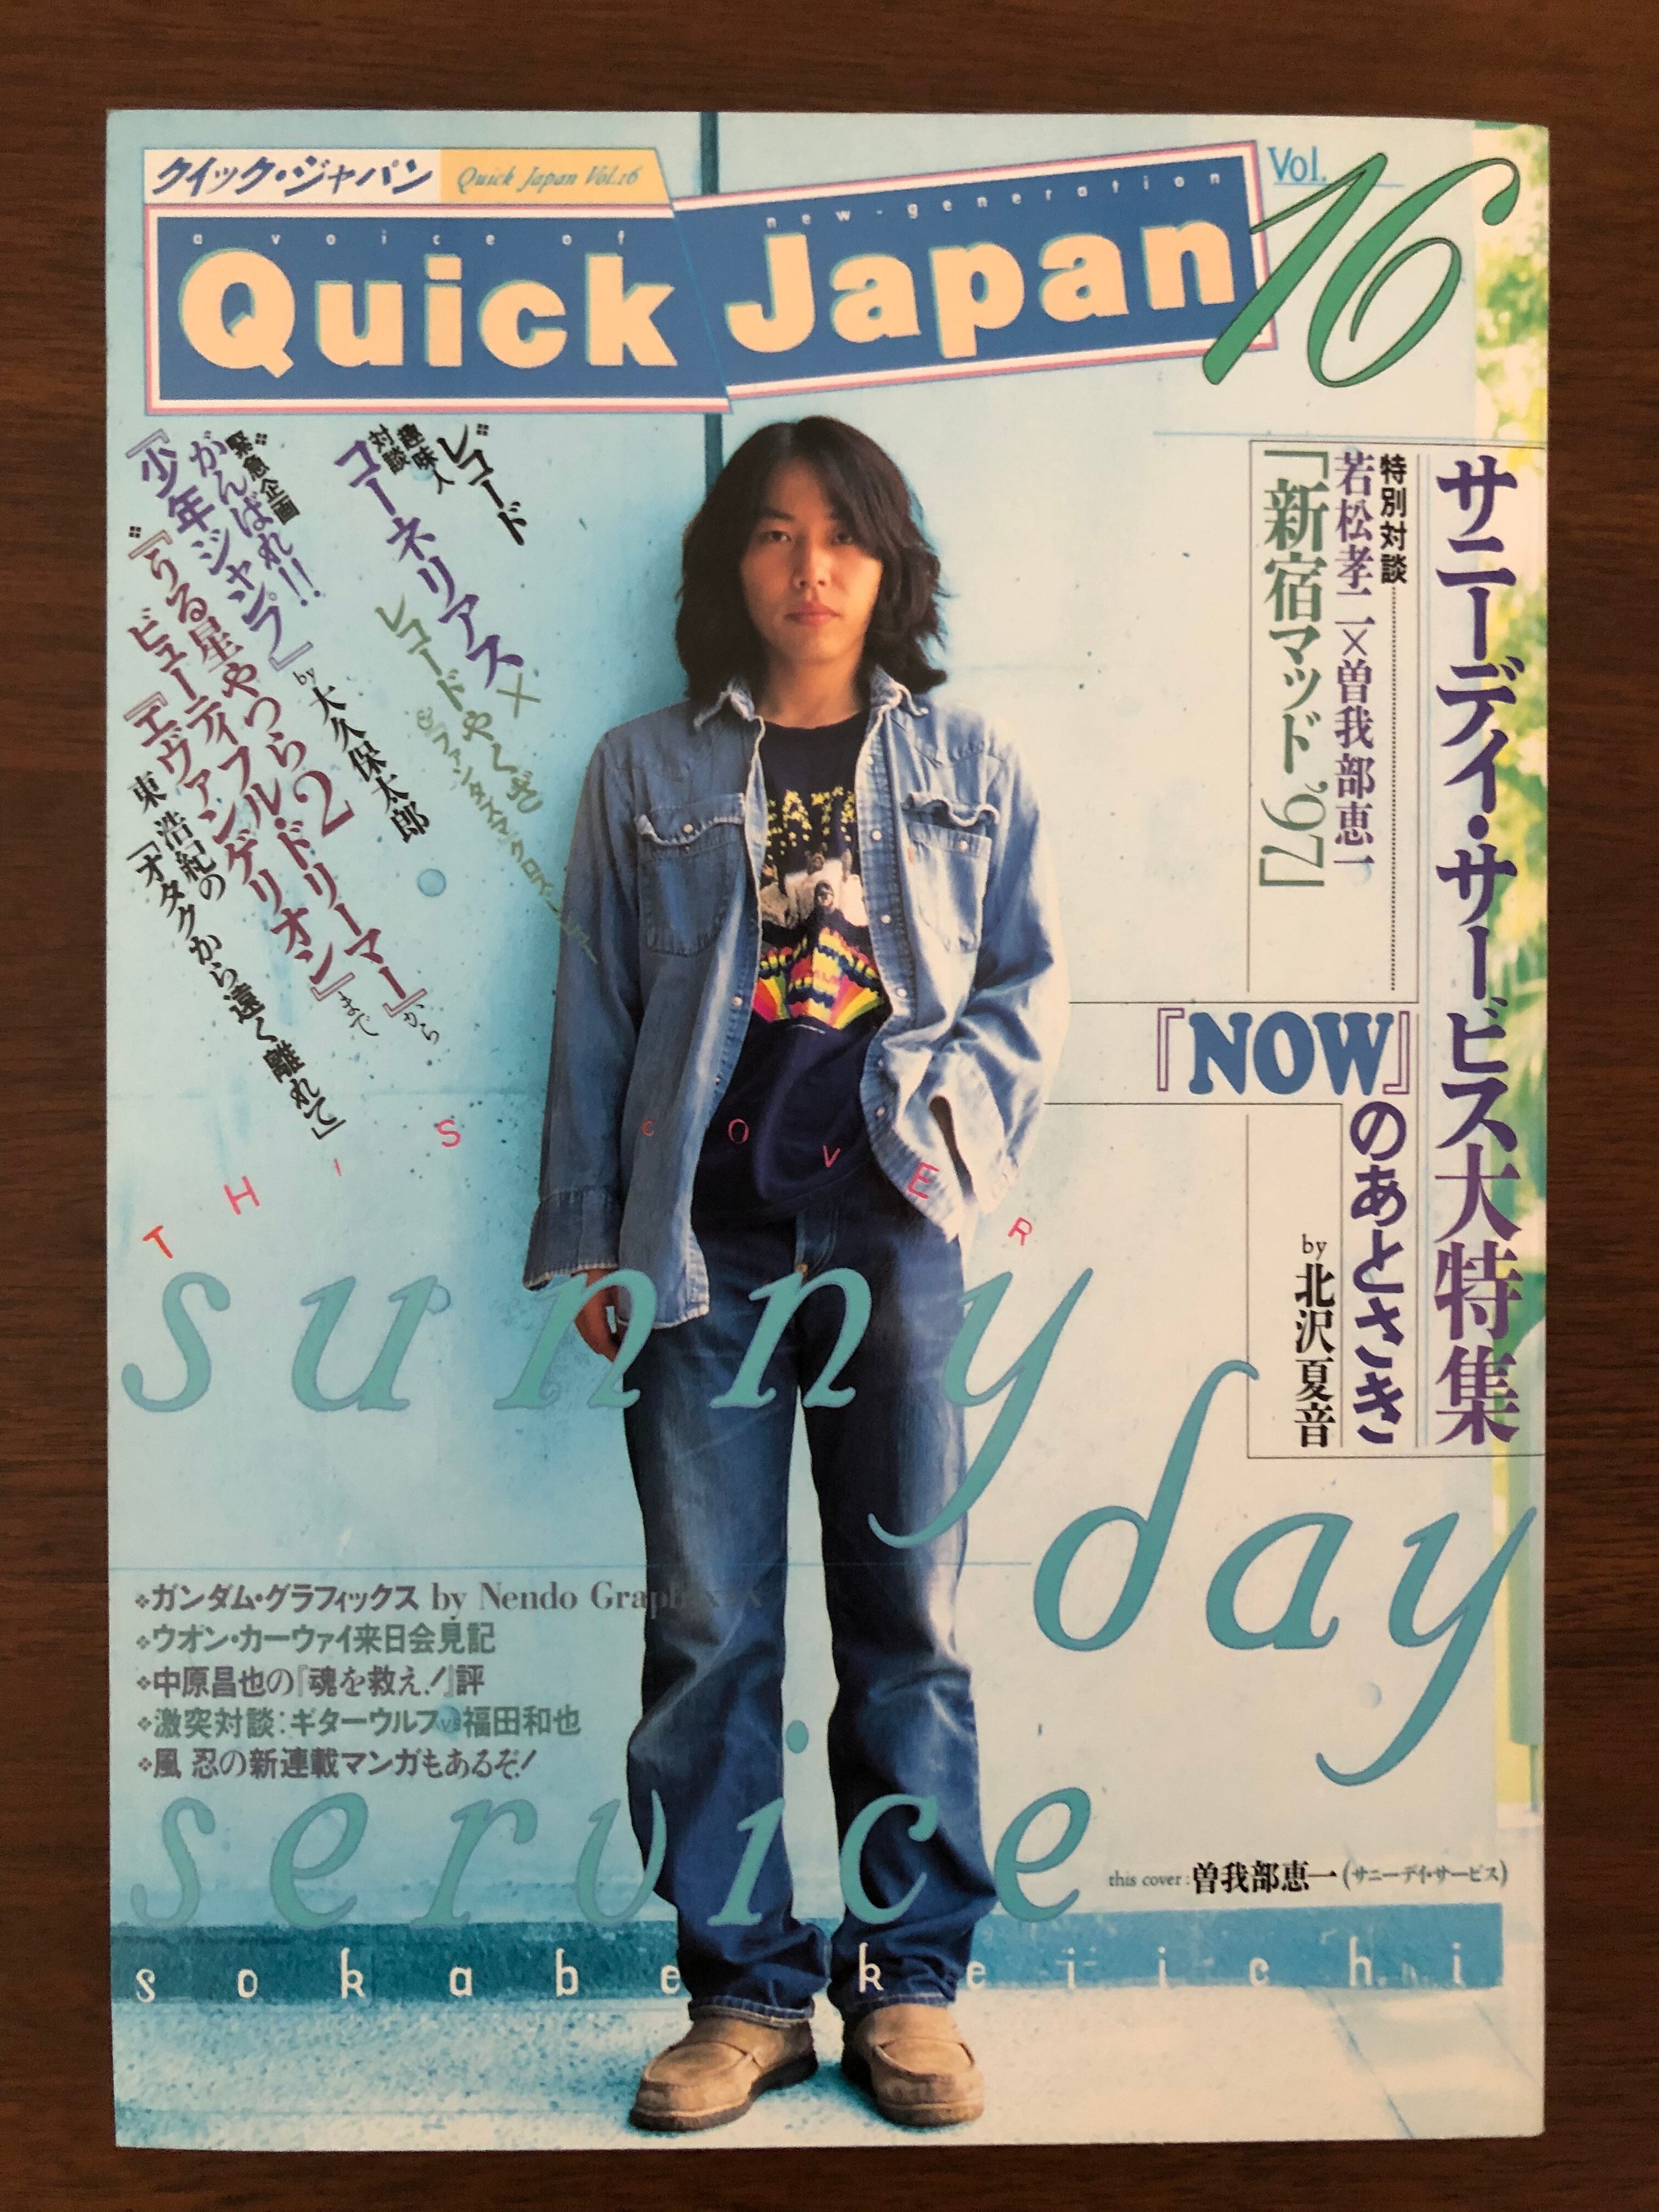 クイック・ジャパン
Quick Japan Vol.16
a voice of
new-generation
Quick Japan
Vol.
16
サニーデイ・サービス大特集
特別対談
若松孝二×曽我部恵一
「新宿マッド’97」
『NOW』
のあとさき
by北沢夏音
❖レコード
趣味人
対談
コーネリアス×
レコードやくざ
❖緊急企画
がんばれ!!
『少年ジャンプ』
by大久保太郎
❖『うる星やつら2
ビューティフル・ドリーマー』から
『エヴァンゲリオン』まで
東浩紀の
「オタクから遠く離れて」
THIS COVER
sunny
day
service
❖ガンダム・グラフィックス by Nendo Graphixxx
❖ウオン・カーウァイ来日会見記
❖中原昌也の『魂を救え!』評
❖激突対談:ギターウルフvs福田和也
❖風 忍の新連載マンガもあるぞ!
this cover:曽我部恵一(サニーデイ・サービス)
sokabe keiichi